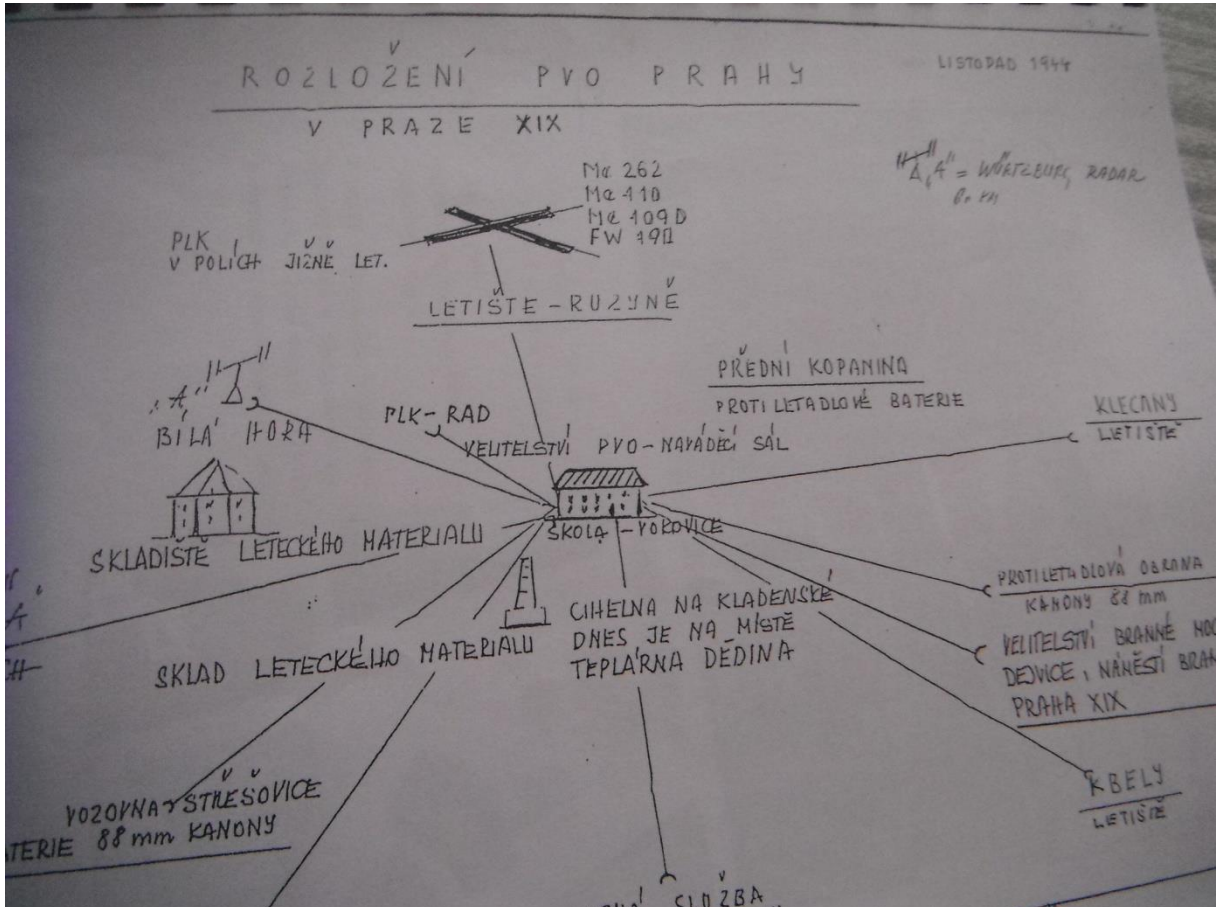 ROZLOŽENÍ PVO PRAHY
V PRAZE XIX
LISTOPAD 1944
"A" = WÜRTZBURG RADAR
Me 262
Me 110
Me 109D
FW 190
PLK
V POLÍCH JIŽNĚ LET.
LETIŠTE - RUZYNĚ
PŘEDNÍ KOPANINA
PROTILETADLOVÉ BATERIE
KLECANY
LETIŠTĚ
"A"
BÍLÁ HORA
PLK - RAD
VELITELSTVÍ PVO - NAVÁDĚCÍ SÁL
ŠKOLA - VOKOVICE
SKLADIŠTĚ LETECKÉHO MATERIALU
PROTILETADLOVÁ OBRANA
KANONY 88 mm
VELITELSTVÍ BRANNÉ MOC
DEJVICE, NÁMĚSTÍ BRAN
PRAHA XIX
CIHELNA NA KLADENSKÉ
DNES JE NA MÍSTĚ
TEPLÁRNA DĚDINA
SKLAD LETECKÉHO MATERIALU
KBELY
LETIŠTĚ
VOZOVNA STŘEŠOVICE
ATERIE 88 mm KANONY
SLUŽBA